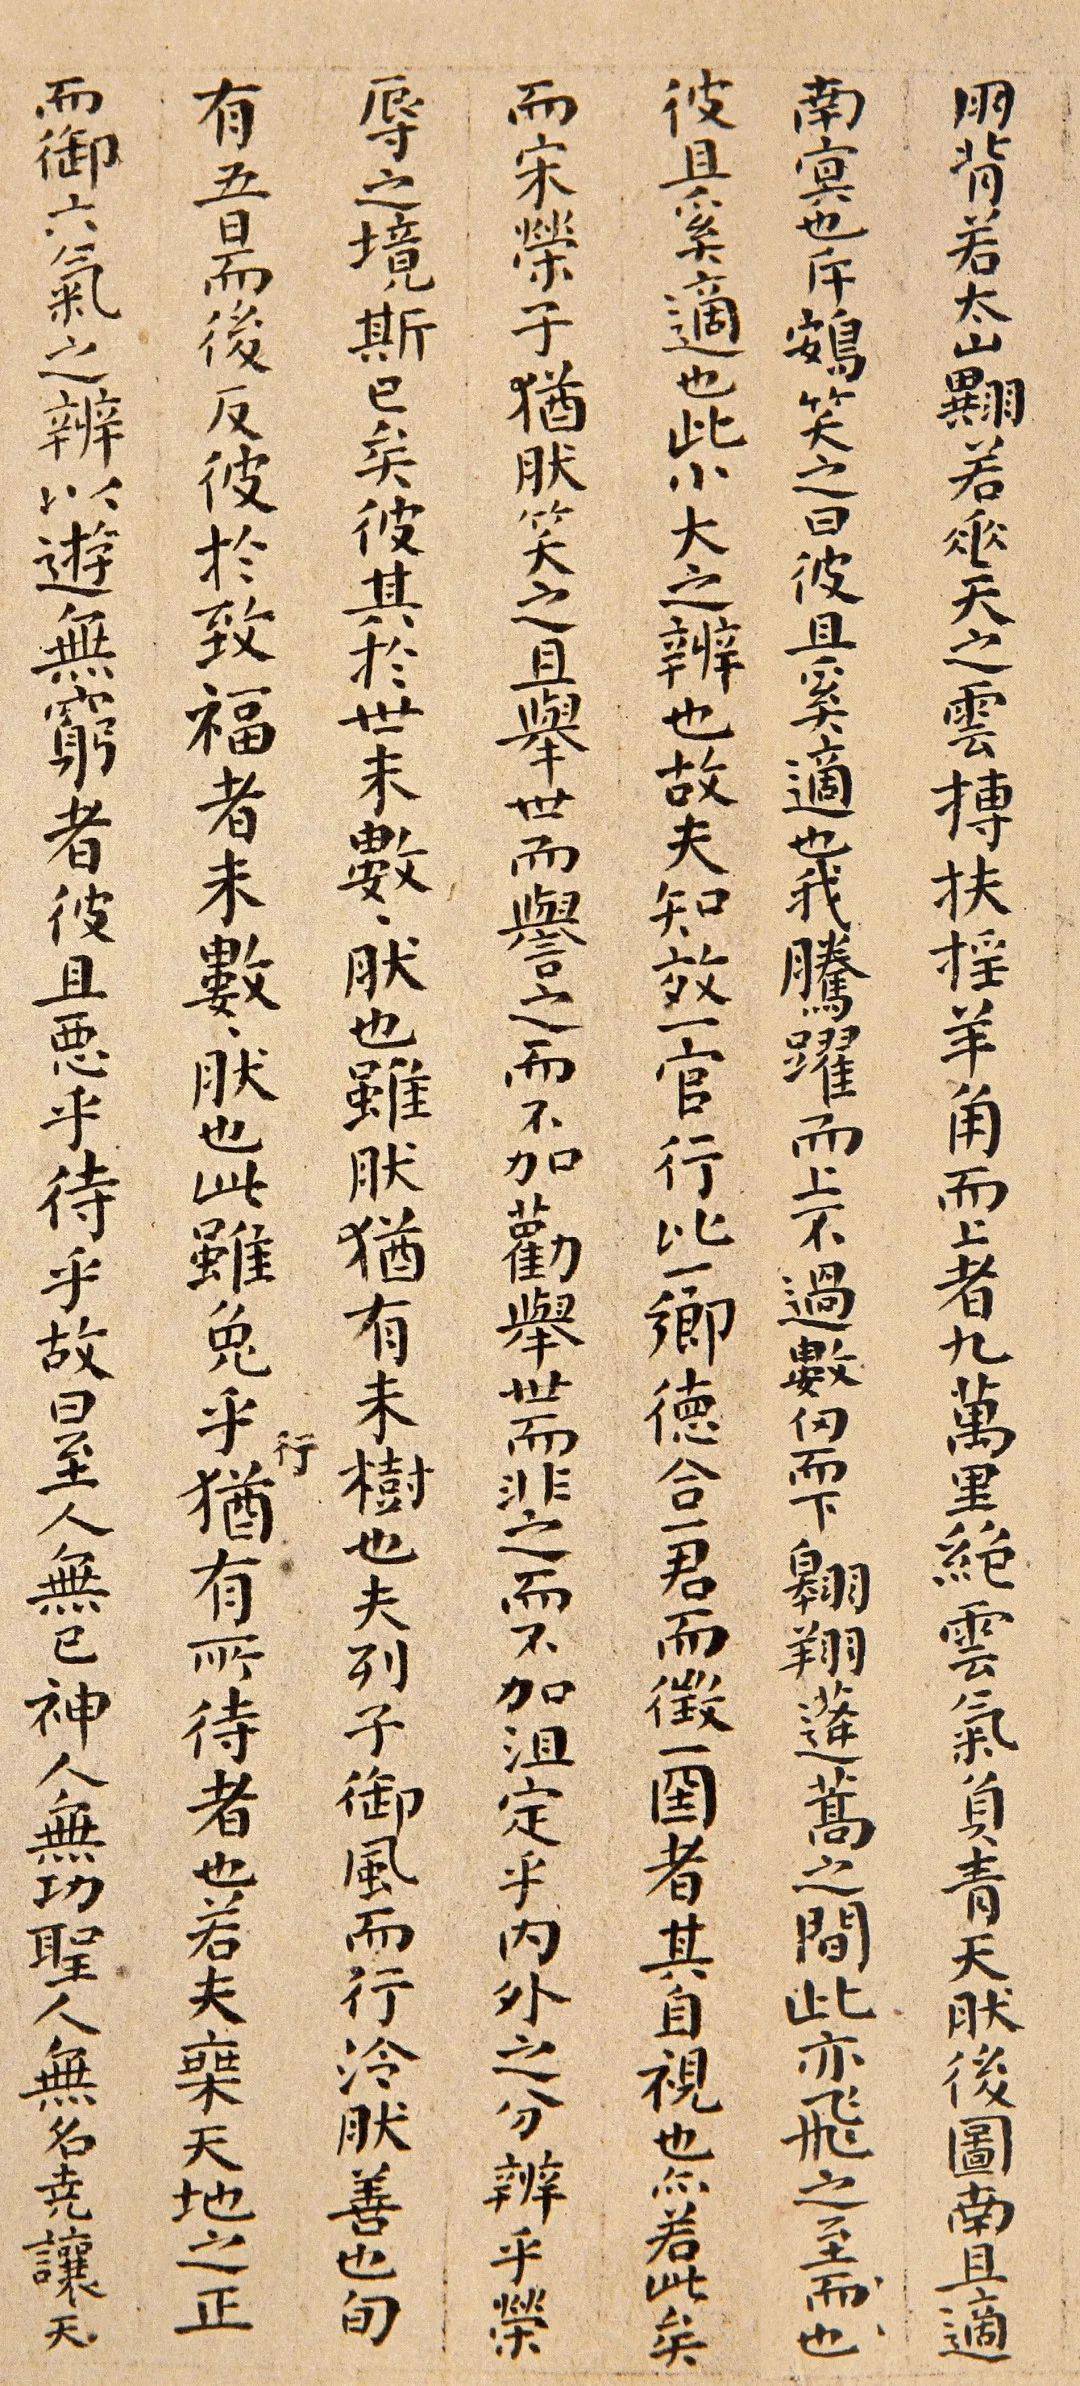 朋背若太山翼若垂天之雲搏扶揺羊角而上者九萬里絶雲氣負青天肰後圖南且適
南冥也斥鷃笑之曰彼且奚適也我騰躍而上不過數仞而下翱翔蓬蒿之間此亦飛之至而也
彼且奚適也此小大之辨也故夫知效一官行比一鄉德合一君而徵一囯者其自視也亦若此矣
而宋榮子猶肰笑之且舉世而譽之而不加勸舉世而非之而不加沮定乎内外之分辨乎榮
辱之境斯已矣彼其於世未數〻肰也雖肰猶有未樹也夫列子御風而行泠肰善也旬
有五日而後反彼於致福者未數〻肰也此雖免乎行猶有所待者也若夫乘天地之正
而御六氣之辨以遊無窮者彼且惡乎待乎故曰至人無已神人無功聖人無名堯讓天